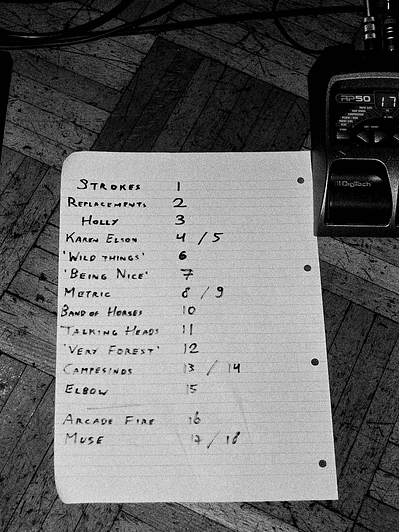 RP50 17
DigiTech
STROKES 1
REPLACEMENTS 2
HOLLY 3
KAREN ELSON 4 / 5
'WILD THINGS' 6
'BEING NICE' 7
METRIC 8 / 9
BAND OF HORSES 10
'TALKING HEADS 11
'VERY FOREST' 12
CAMPESINOS 13 / 14
ELBOW 15
ARCADE FIRE 16
MUSE 17 / 18